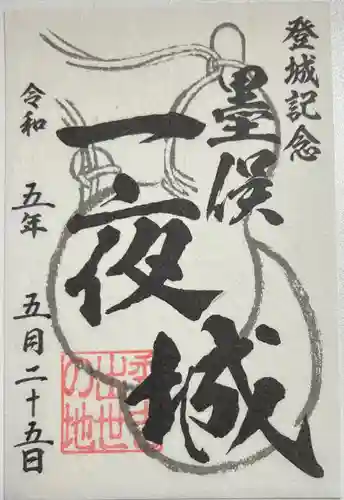 登城記念
墨俣
一夜城
秀吉
出世
の地
令和 五年 五月二十五日